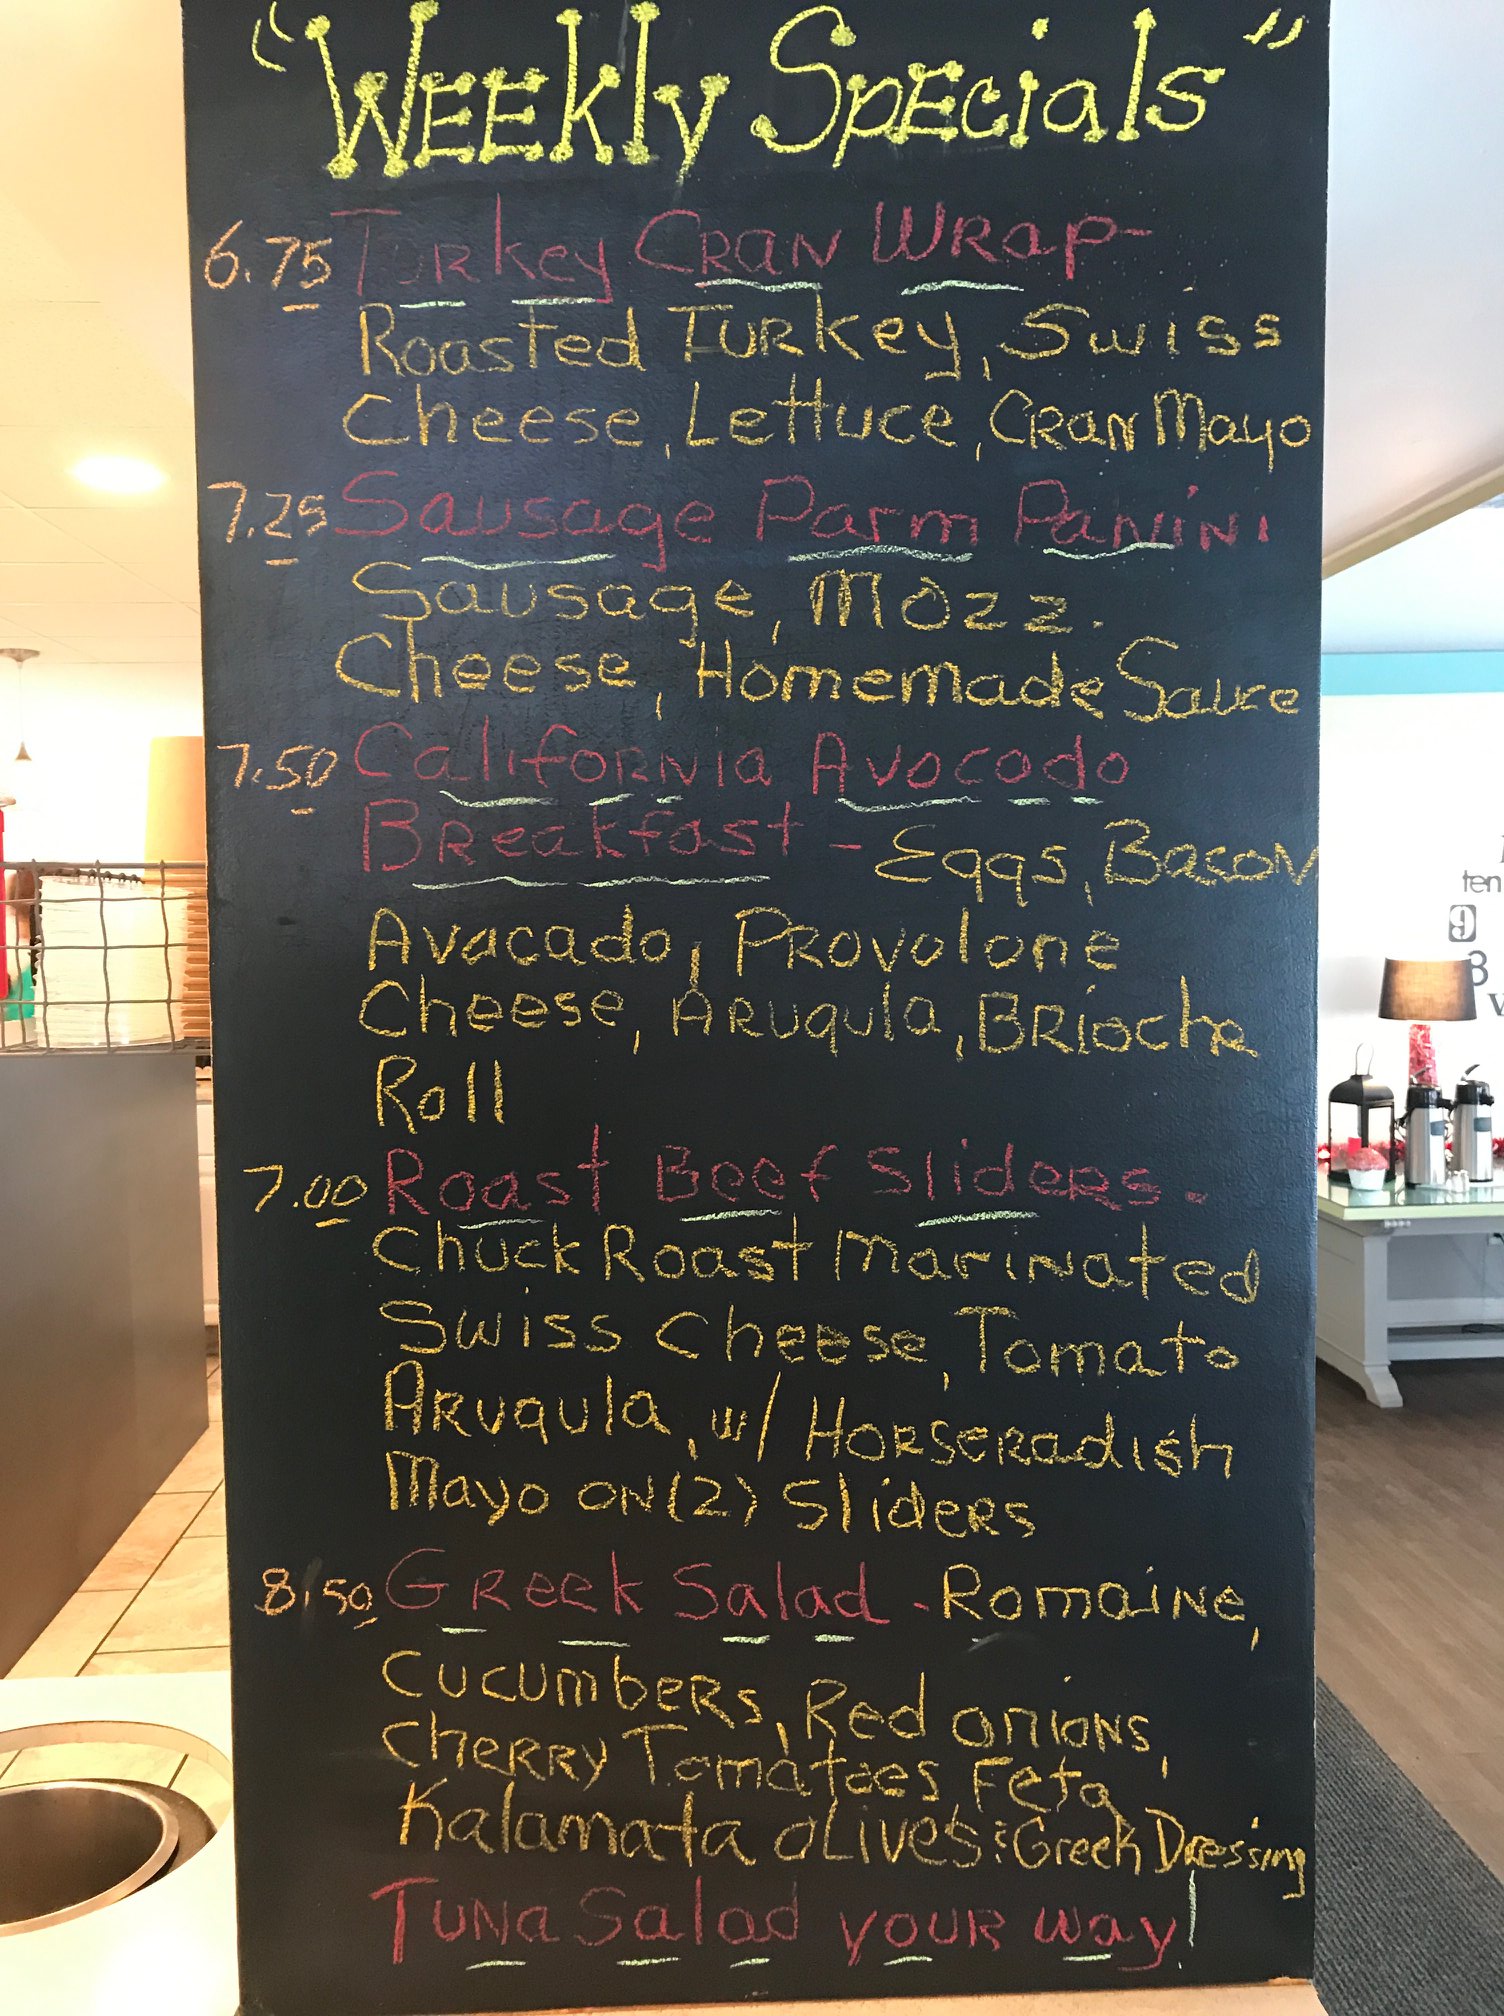 "Weekly Specials"
6.75 Turkey Cran Wrap-
Roasted Turkey, Swiss
Cheese, Lettuce, Cran Mayo
7.25 Sausage Parm Panini
Sausage, Mozz.
Cheese, Homemade Sauce
7.50 California Avocado
Breakfast - Eggs, Bacon
Avacado, Provolone
Cheese, Arugula, Brioche
Roll
7.00 Roast Beef Sliders.
Chuck Roast Marinated
Swiss Cheese, Tomato
Arugula, w/ Horseradish
Mayo on (2) Sliders
8.50 Greek Salad - Romaine,
Cucumbers, Red onions,
Cherry Tomatoes, Feta
Kalamata olives & Greek Dressing
Tuna Salad your way!
ten
9
3